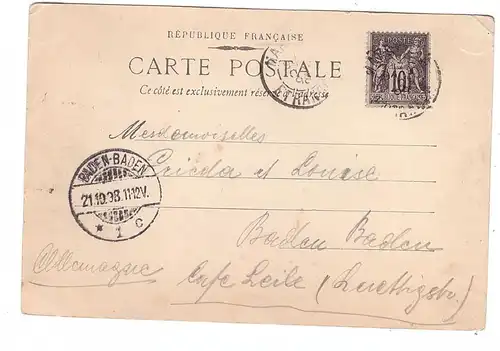 RÉPUBLIQUE FRANÇAISE
CARTE POSTALE
Ce côté est exclusivement réservé à l'adresse
POSTES
10
ETRANGER
Mesdemoiselles
Frieda et Louise
BADEN-BADEN
21.10.98.11-12V.
* 1 c
Baden Baden
Allemagne
Café Leile (Luettigstr.)